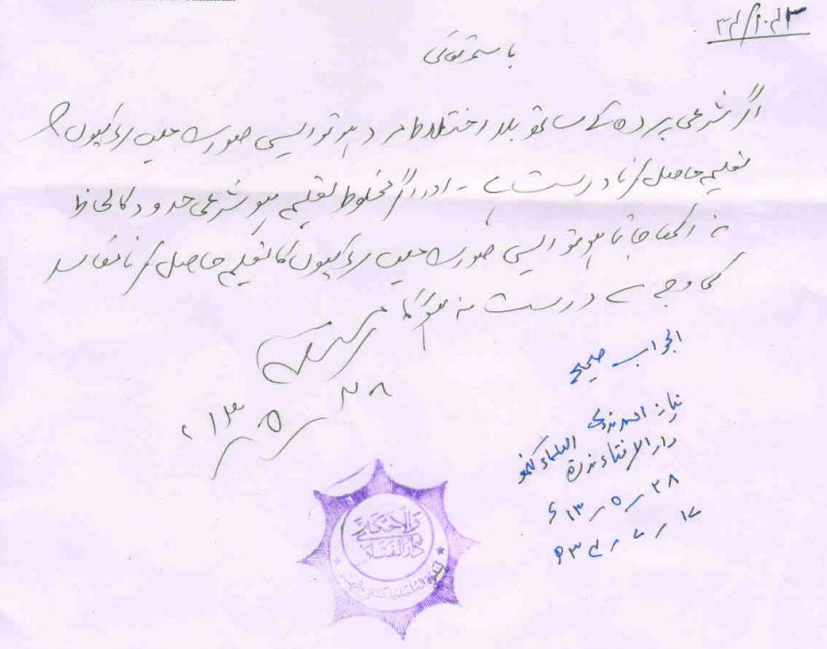 باسمہ تعالیٰ
اگر شرعی پردہ کے ساتھ بلا اختلاط مرد ہو تو ایسی صورت میں لڑکیوں کا
تعلیم حاصل کرنا درست ہے - اور اگر مخلوط تعلیم ہو شرعی حدود کا لحاظ
نہ رکھا جاتا ہو تو ایسی صورت میں لڑکیوں کا تعلیم حاصل کرنا مفاسد
کی وجہ سے درست نہ ہوگا
۲۸ / ۵ / ۱۳ء
الجواب صحیح
نیاز احمد ندوی
دارالافتاء ندوۃ العلماء لکھنؤ
۲۸ / ۵ / ۱۳ء
دارالافتاء